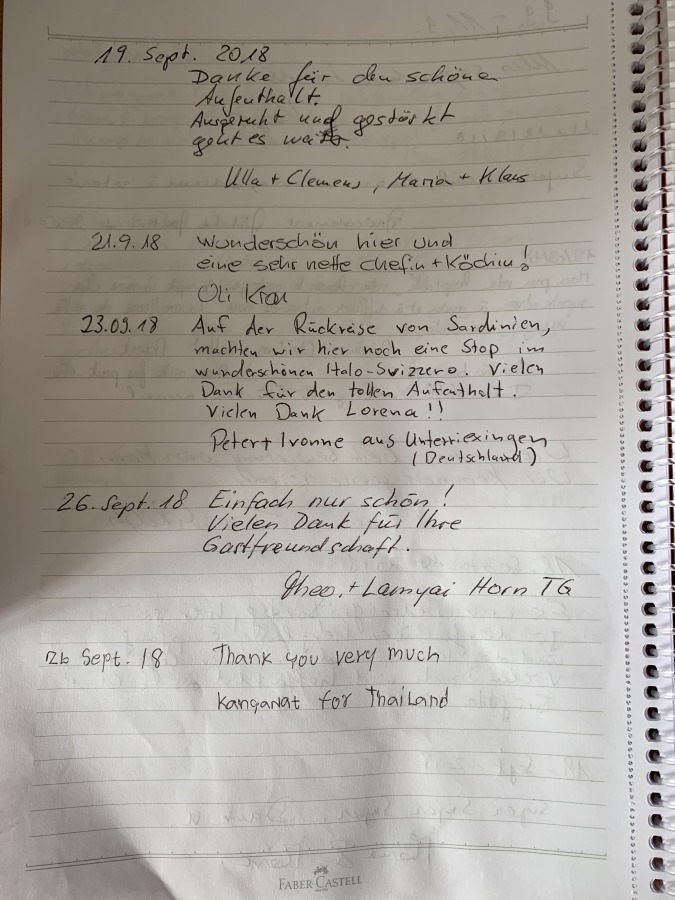 19. Sept. 2018
Danke für den schönen
Aufenthalt.
Ausgeruht und gestärkt
geht es
Ulla + Clemens, Maria + Klaus
21.9.18 Wunderschön hier und
eine sehr nette Chefin + Köchin!
Oli
23.09.18 Auf der Rückreise von Sardinien,
machten wir hier noch eine Stop im
wunderschönen Italo-Svizzero. Vielen
Dank für den tollen Aufenthalt.
Vielen Dank Lorena!!
Peter + Ivonne aus Unterriexingen
(Deutschland)
26. Sept. 18 Einfach nur schön!
Vielen Dank für Ihre
Gastfreundschaft.
Theo. + Lamyai Horn TG
26 Sept. 18 Thank you very much
Kanganat for Thailand
FABER-CASTELL